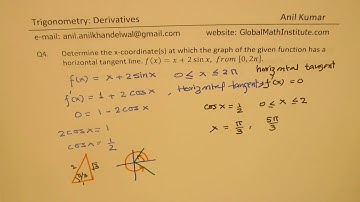 Trigonometry: Derivatives
Anil Kumar
e-mail: anil.anilkhandelwal@gmail.com
website: GlobalMathInstitute.com
Q4. Determine the x-coordinate(s) at which the graph of the given function has a
horizontal tangent line. f(x) = x + 2 sin x, from [0, 2π].
f(x) = x + 2 sinx 0 ≤ x ≤ 2π horizontal tangent
f'(x) = 1 + 2 cosx , Horizontal tangents f'(x) = 0
0 = 1 - 2 cosx
2 cosx = 1
cosx = 1/2
cosx = 1/2 0 ≤ x ≤ 2
x = π/3 , 5π/3
2 √3
π/3
1